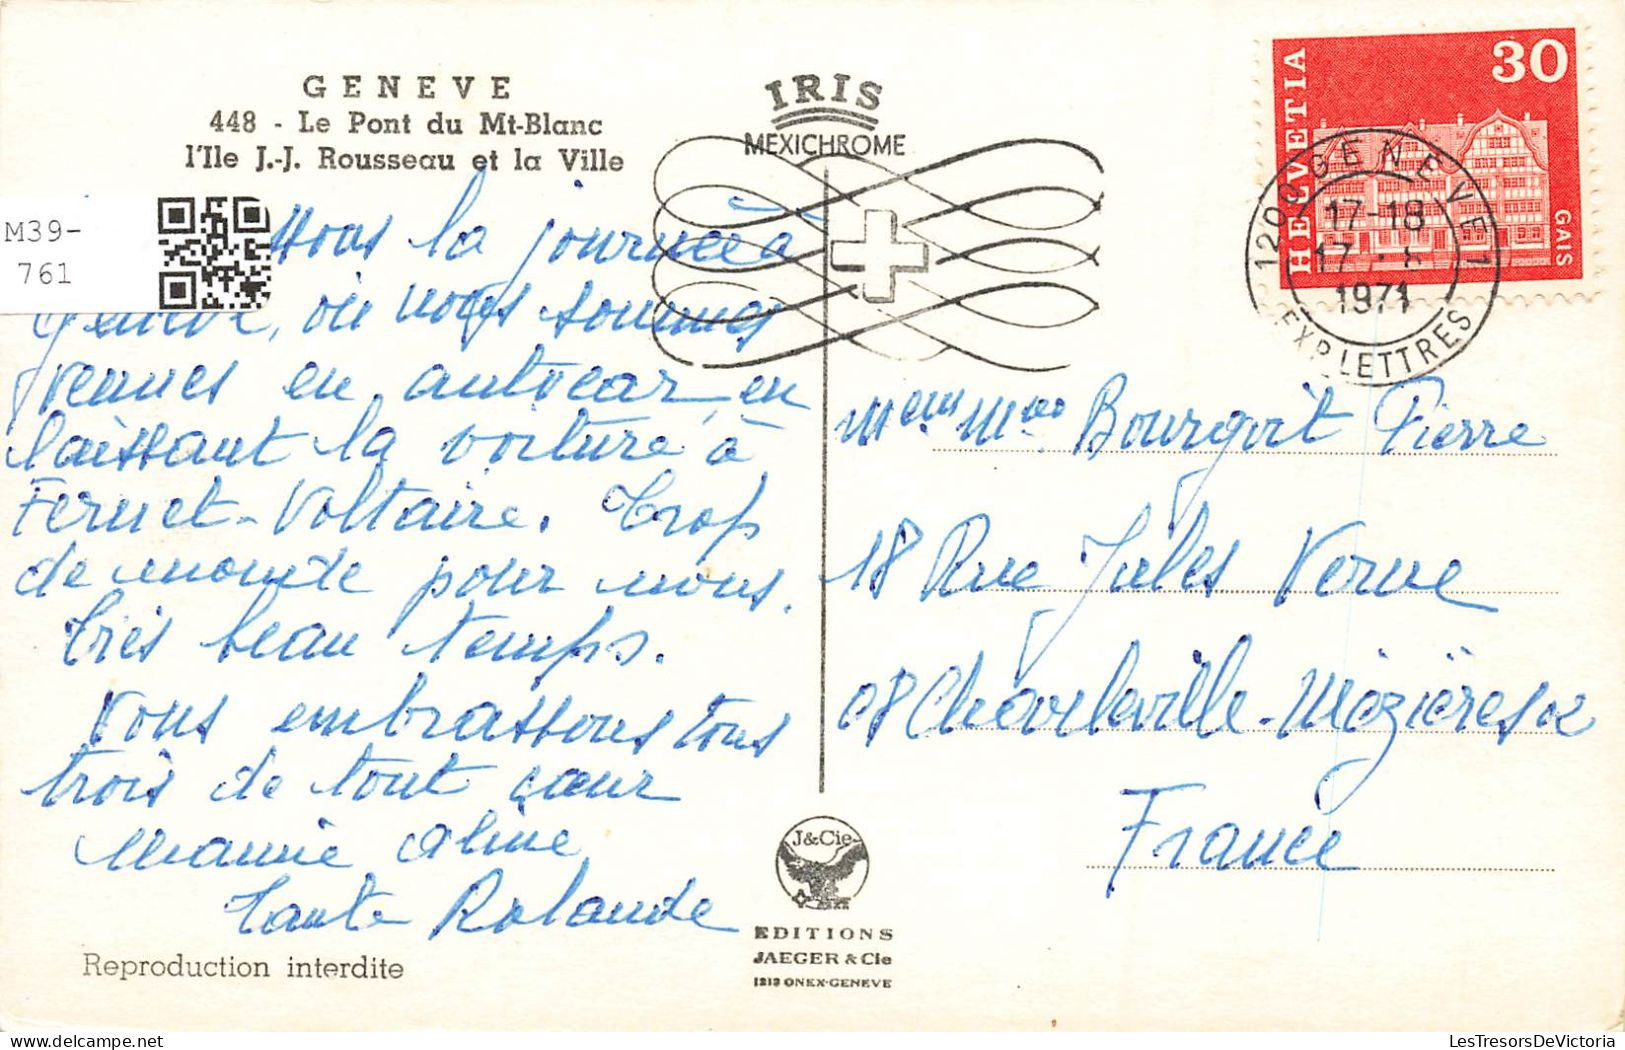 GENEVE
448 - Le Pont du Mt-Blanc
l'Ile J.-J. Rousseau et la Ville
IRIS
MEXICHROME
HELVETIA
30
GAIS
1200 GENEVE 1
17-18
17
1971
EXP LETTRES
M39-
761
la journée à
Genève, où nous sommes
venues en autocar, en
laissant la voiture à
Fernet-Voltaire. Trop
de monde pour nous.
très beau temps.
Vous embrassons tous
trois de tout cœur
Mamie Aline
Tante Rolande
Bourgoit Pierre
18 Rue Jules Verne
08 Charleville-Mézières
France
J&Cie
EDITIONS
JAEGER & Cie
1213 ONEX-GENEVE
Reproduction interdite
LesTresorsDeVictoria